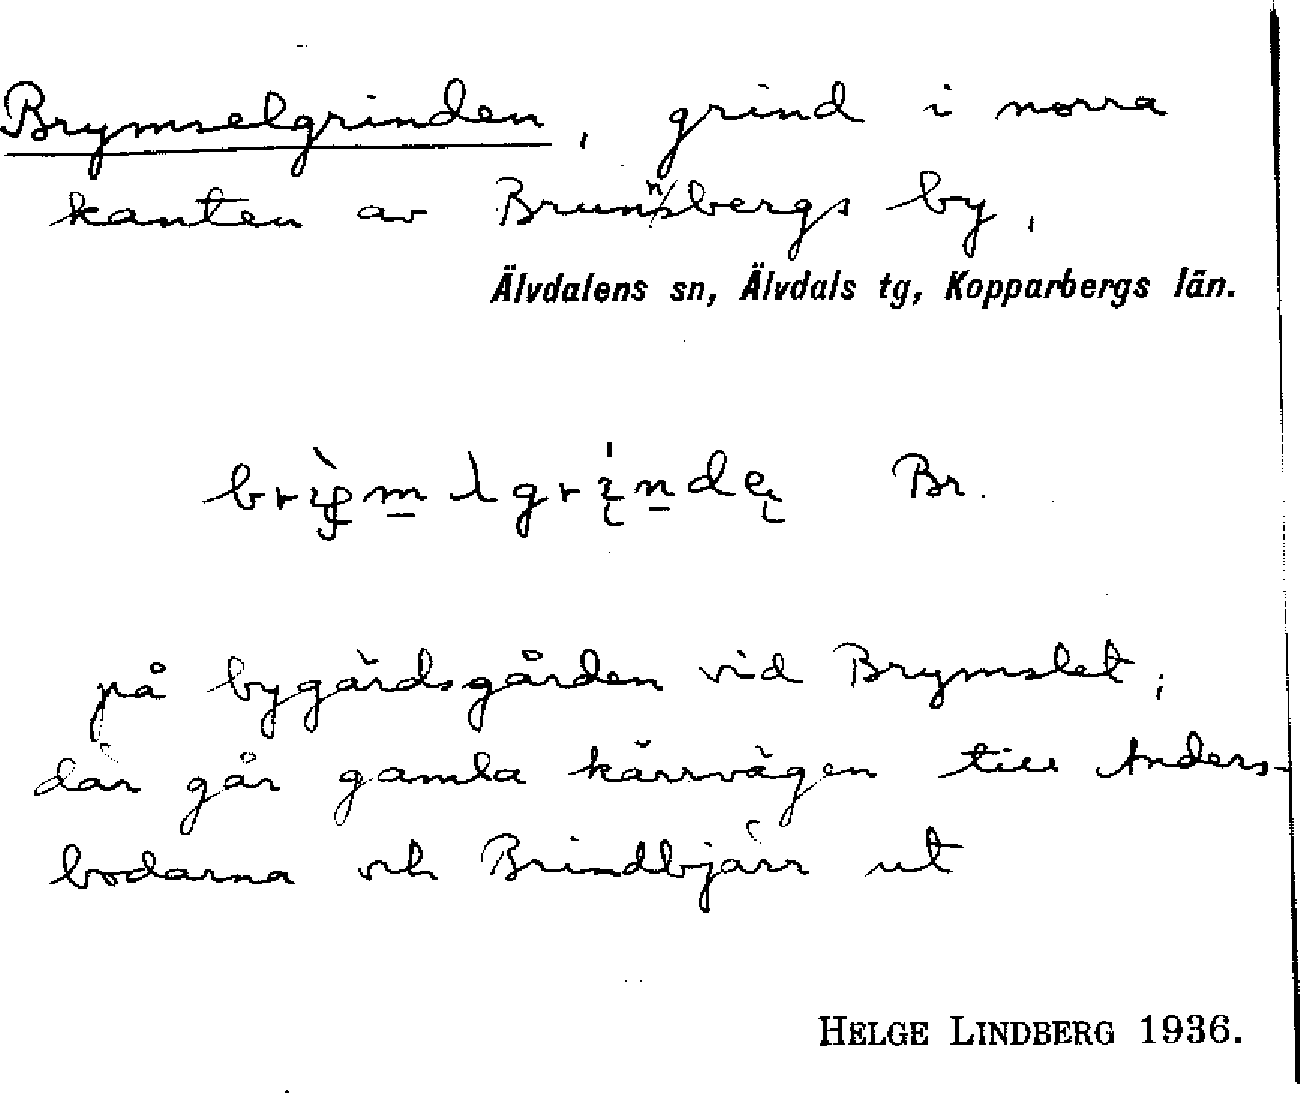 Brymselgrinden, grind i norra
kanten av Brunnsbergs by,
Älvdalens sn, Älvdals tg, Kopparbergs län.
Br.
på bygärdsgården vid Brymslet;
där går gamla kärrvägen till Anders-
bodarna och Brindbjärr ut
HELGE LINDBERG 1936.